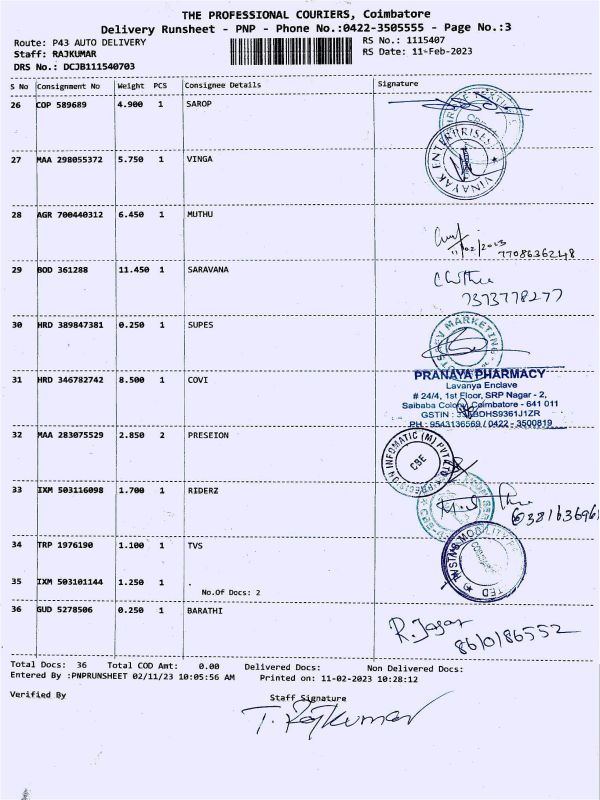 THE PROFESSIONAL COURIERS, Coimbatore
Delivery Runsheet - PNP - Phone No.:0422-3505555 - Page No.:3
Route: P43 AUTO DELIVERY
RS No.: 1115407
Staff: RAJKUMAR
RS Date: 11-Feb-2023
DRS No.: DCJB111540703
S No Consignment No Weight PCS Consignee Details Signature
26 COP 589689 4.900 1 SAROP
VINAYAK ENTERPRISES
27 MAA 298055372 5.750 1 VINGA
28 AGR 700440312 6.450 1 MUTHU
11/02/2023
7708636248
29 BOD 361288 11.450 1 SARAVANA
7373778277
30 HRD 389847381 0.250 1 SUPES
MARKETING
31 HRD 346782742 8.500 1 COVI
PRANAYA PHARMACY
Lavanya Enclave
# 24/4, 1st Floor, SRP Nagar - 2,
Saibaba Colony, Coimbatore - 641 011
GSTIN :
PH : 9543136569 / 0422 - 3500819
32 MAA 283075529 2.850 2 PRESEION
INFOMATIC (M) PVT LTD
CBE
33 IXM 503116098 1.700 1 RIDERZ
34 TRP 1976190 1.100 1 TVS
MOBILITY
35 IXM 503101144 1.250 1
No.Of Docs: 2
36 GUD 5278506 0.250 1 BARATHI
8610186552
Total Docs: 36 Total COD Amt: 0.00 Delivered Docs: Non Delivered Docs:
Entered By :PNPRUNSHEET 02/11/23 10:05:56 AM Printed on: 11-02-2023 10:28:12
Verified By Staff Signature
T. Rajkumar